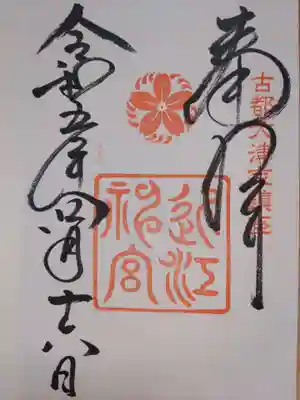 奉拝
古都大津京鎮座
近江神宮
令和五年四月十六日